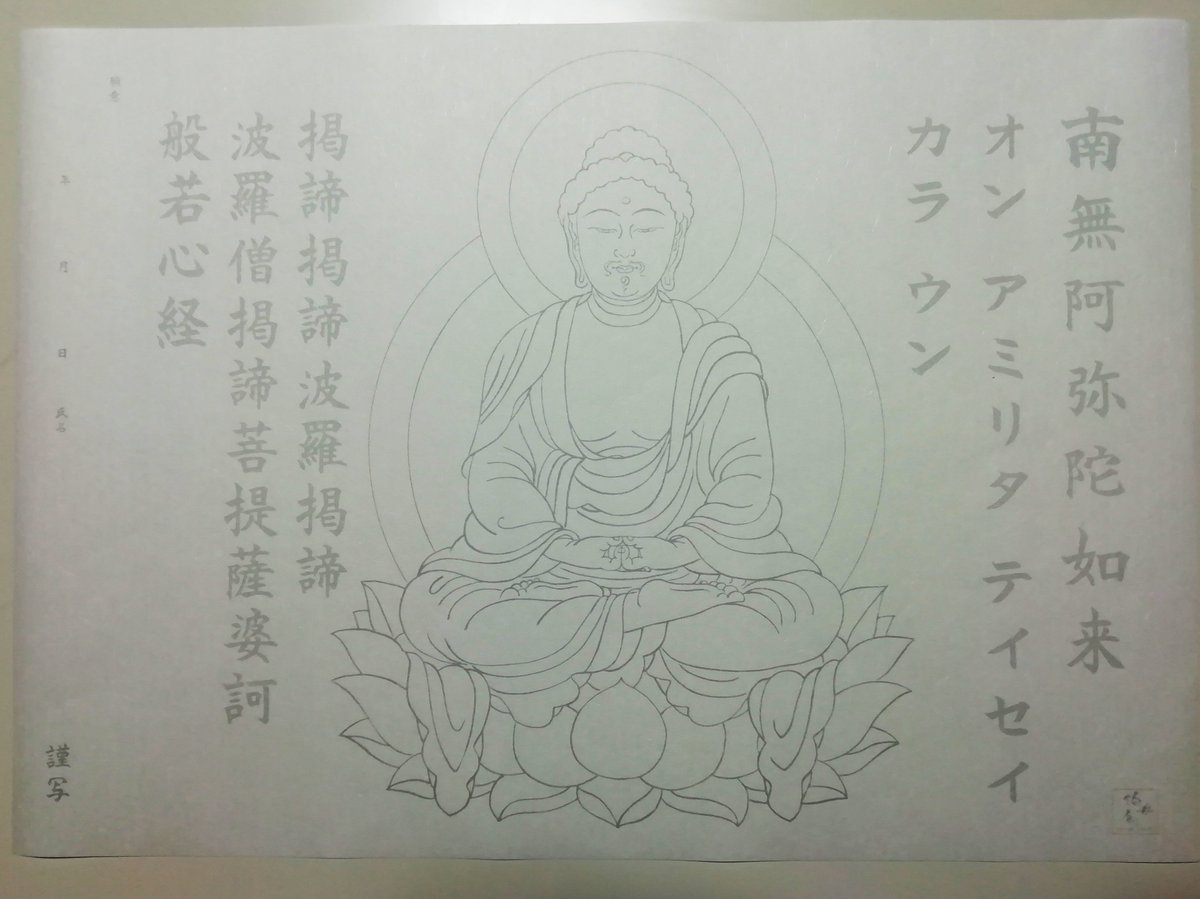 南無阿弥陀如来
オン アミリタ テイセイ
カラ ウン
掲諦掲諦波羅掲諦
波羅僧掲諦菩提薩婆訶
般若心経
願意
年 月 日 氏名
謹写